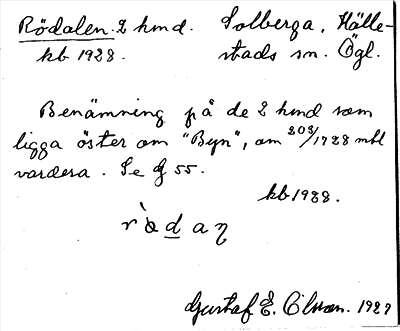 Rödalen. 2 hmd. Solberga, Hälle-
kb 1928. stads sn. Ögl.
Benämning på de 2 hmd som
ligga öster om "Byn", om 203/1728 mtl
vardera. Se G 55.
kb 1988.
Gustaf E. 1927